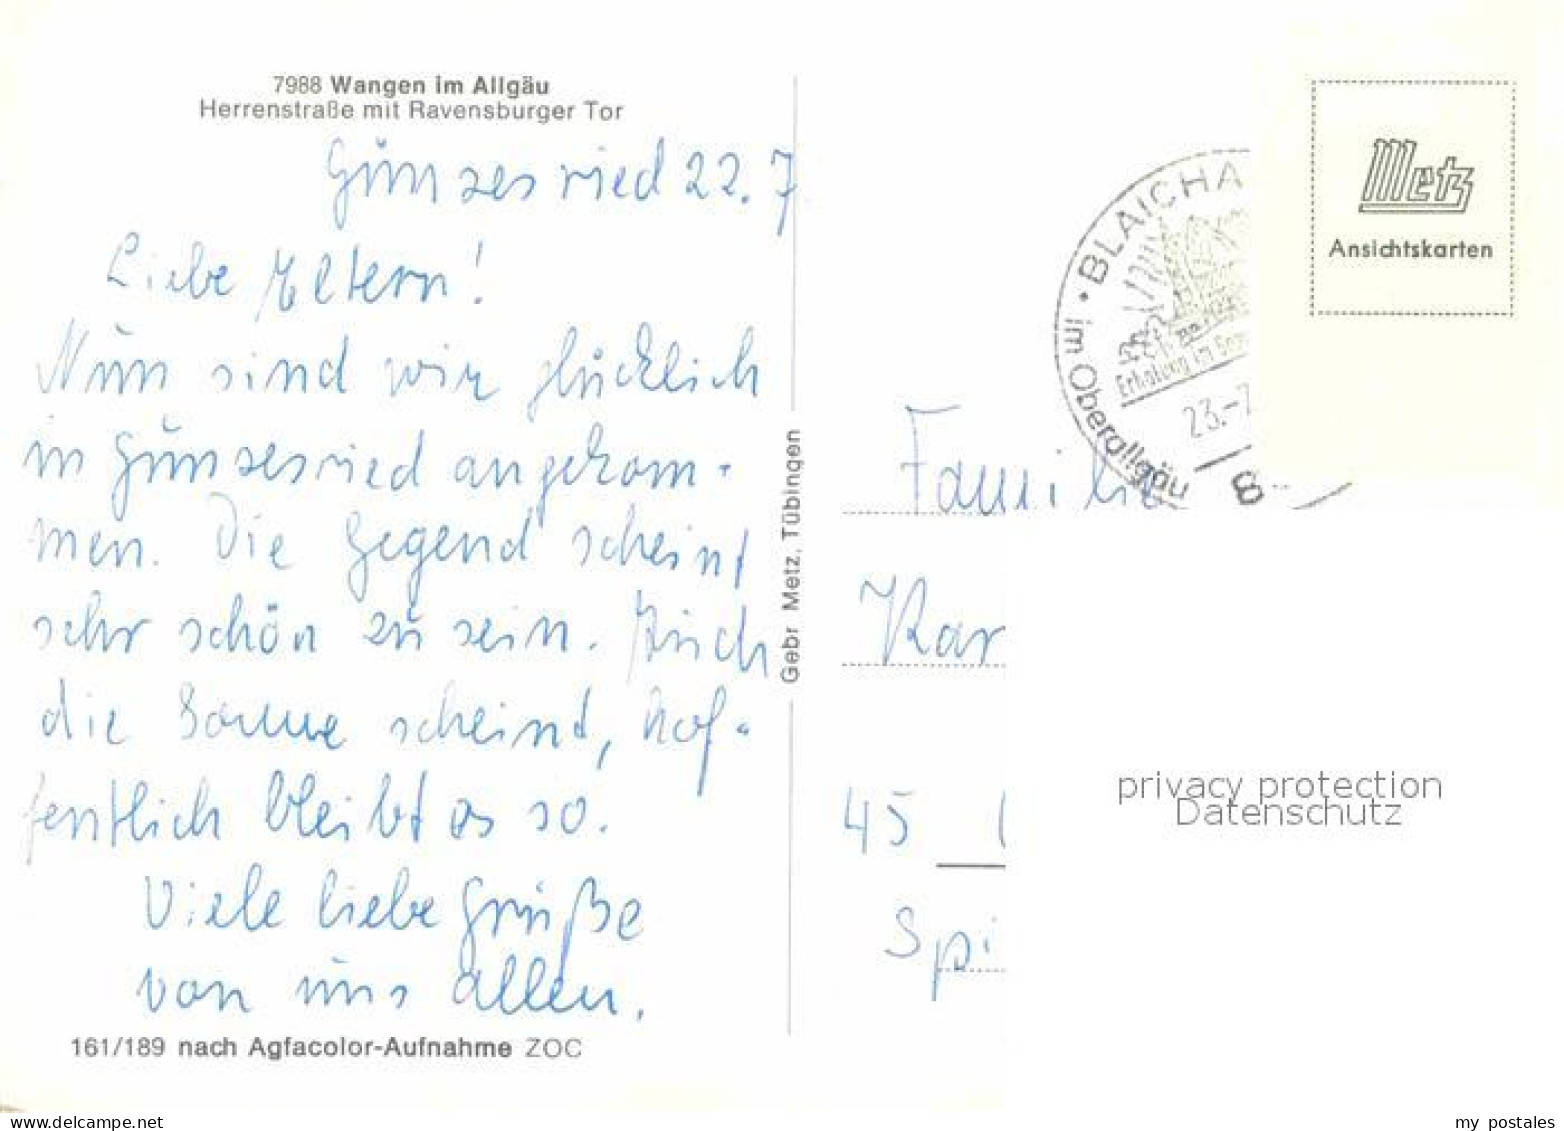 7988 Wangen im Allgäu
Herrenstraße mit Ravensburger Tor
Günzesried 22.7
Liebe Eltern!
Nun sind wir glücklich
in Günzesried angekom-
men. Die Gegend scheint
sehr schön zu sein. Auch
die Sonne scheint, hof-
fentlich bleibt es so.
Viele liebe Grüße
von uns allen.
161/189 nach Agfacolor-Aufnahme ZOC
Gebr Metz, Tübingen
BLAICHA
im Oberallgäu
Erholung im
23.-7
Metz
Ansichtskarten
Familie
Kar
45
Spi
privacy protection
Datenschutz
www.delcampe.net
my_postales